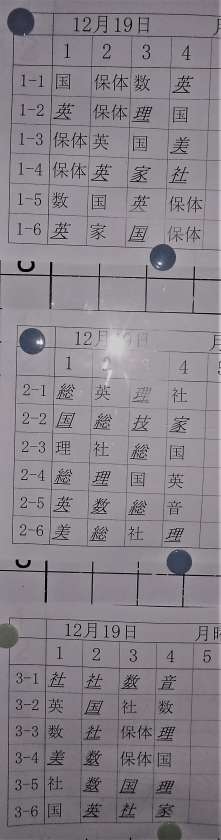 12月19日 月
1 2 3 4
1-1 国 保体 数 英
1-2 英 保体 理 国
1-3 保体 英 国 美
1-4 保体 英 家 社
1-5 数 国 英 保体
1-6 英 家 国 保体
12月19日 月
1 2 4
2-1 総 英 理 社
2-2 国 総 技 家
2-3 理 社 総 国
2-4 総 理 国 英
2-5 英 数 総 音
2-6 美 総 社 理
12月19日 月
1 2 3 4 5
3-1 社 社 数 音
3-2 英 国 社 数
3-3 数 社 保体 理
3-4 美 数 保体 国
3-5 社 数 国 理
3-6 国 英 社 家